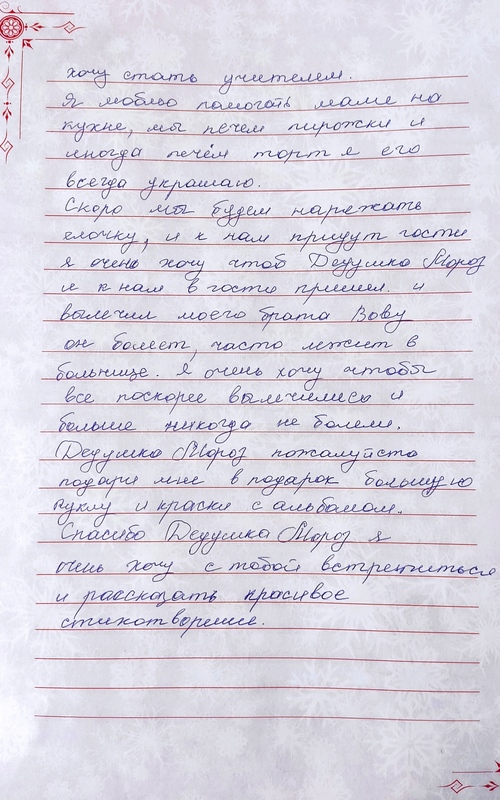 хочу стать учителем.
Я люблю помогать маме на
кухне, мы печем пирожки и
иногда печём торт я его
всегда украшаю.
Скоро мы будем наряжать
елочку, и к нам придут гости
я очень хочу чтоб Дедушка Мороз
и к нам в гости пришел. и
вылечил моего брата Вову
он болеет, часто лежит в
больнице. Я очень хочу чтобы
все поскорее вылечились и
больше никогда не болели.
Дедушка Мороз пожалуйста
подари мне в подарок большую
куклу и краски с альбомом.
Спасибо Дедушка Мороз я
очень хочу с тобой встретиться
и рассказать красивое
стихотворение.